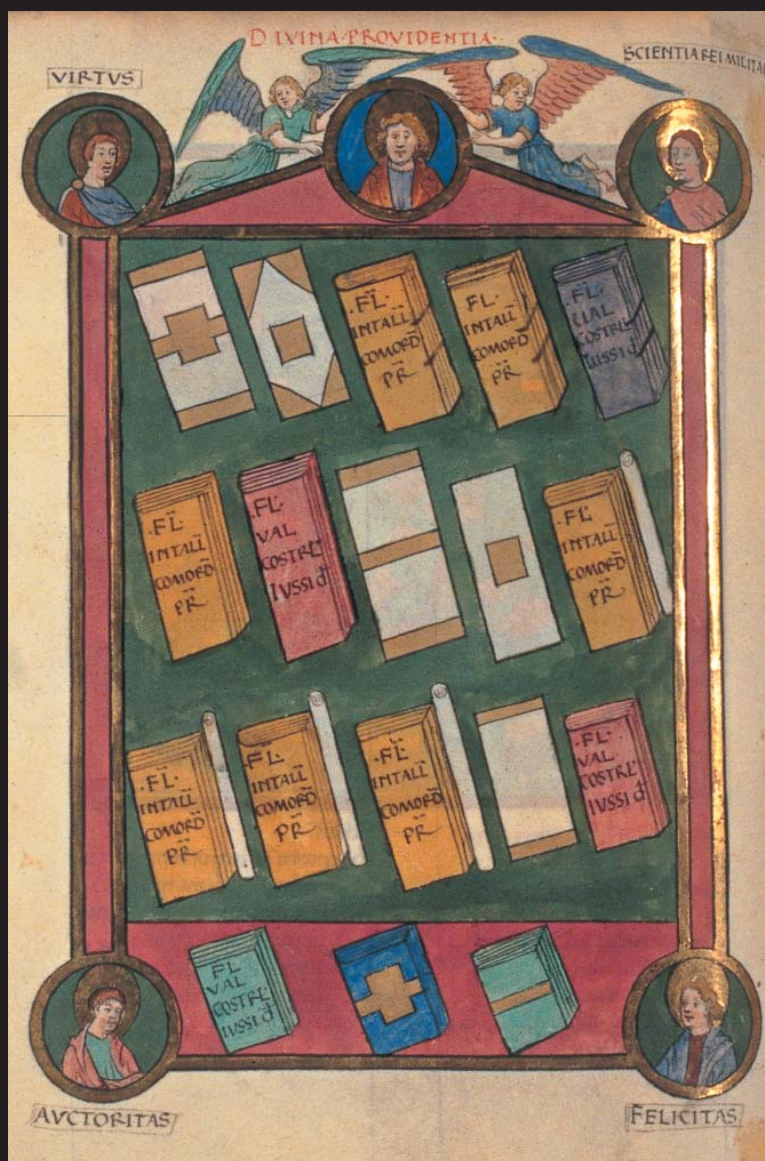 DIVINA·PROVIDENTIA·
VIRTVS
SCIENTIA REI MILITAR
·FL̄·
INTALL̄
COMORD̄
PR̄
FL·
INTALL̄
COMORD̄
PR̄
·FL·
UAL
COSTRE
IUSSI đ
·FL̄·
INTALL̄
COMORD̄
PR̄
·FL·
VAL
COSTRE
IVSSI đ
·FL̄·
INTALL̄
COMORD̄
PR̄
·FL̄·
INTALL̄
COMORD̄
PR̄
·FL̄·
INTALL̄
COMORD̄
PR̄
·FL̄·
INTALL̄
COMORD̄
PR̄
·FL·
VAL
COSTRE
IVSSI đ
FL
VAL
COSTRE
IVSSI đ
AVCTORITAS
FELICITAS